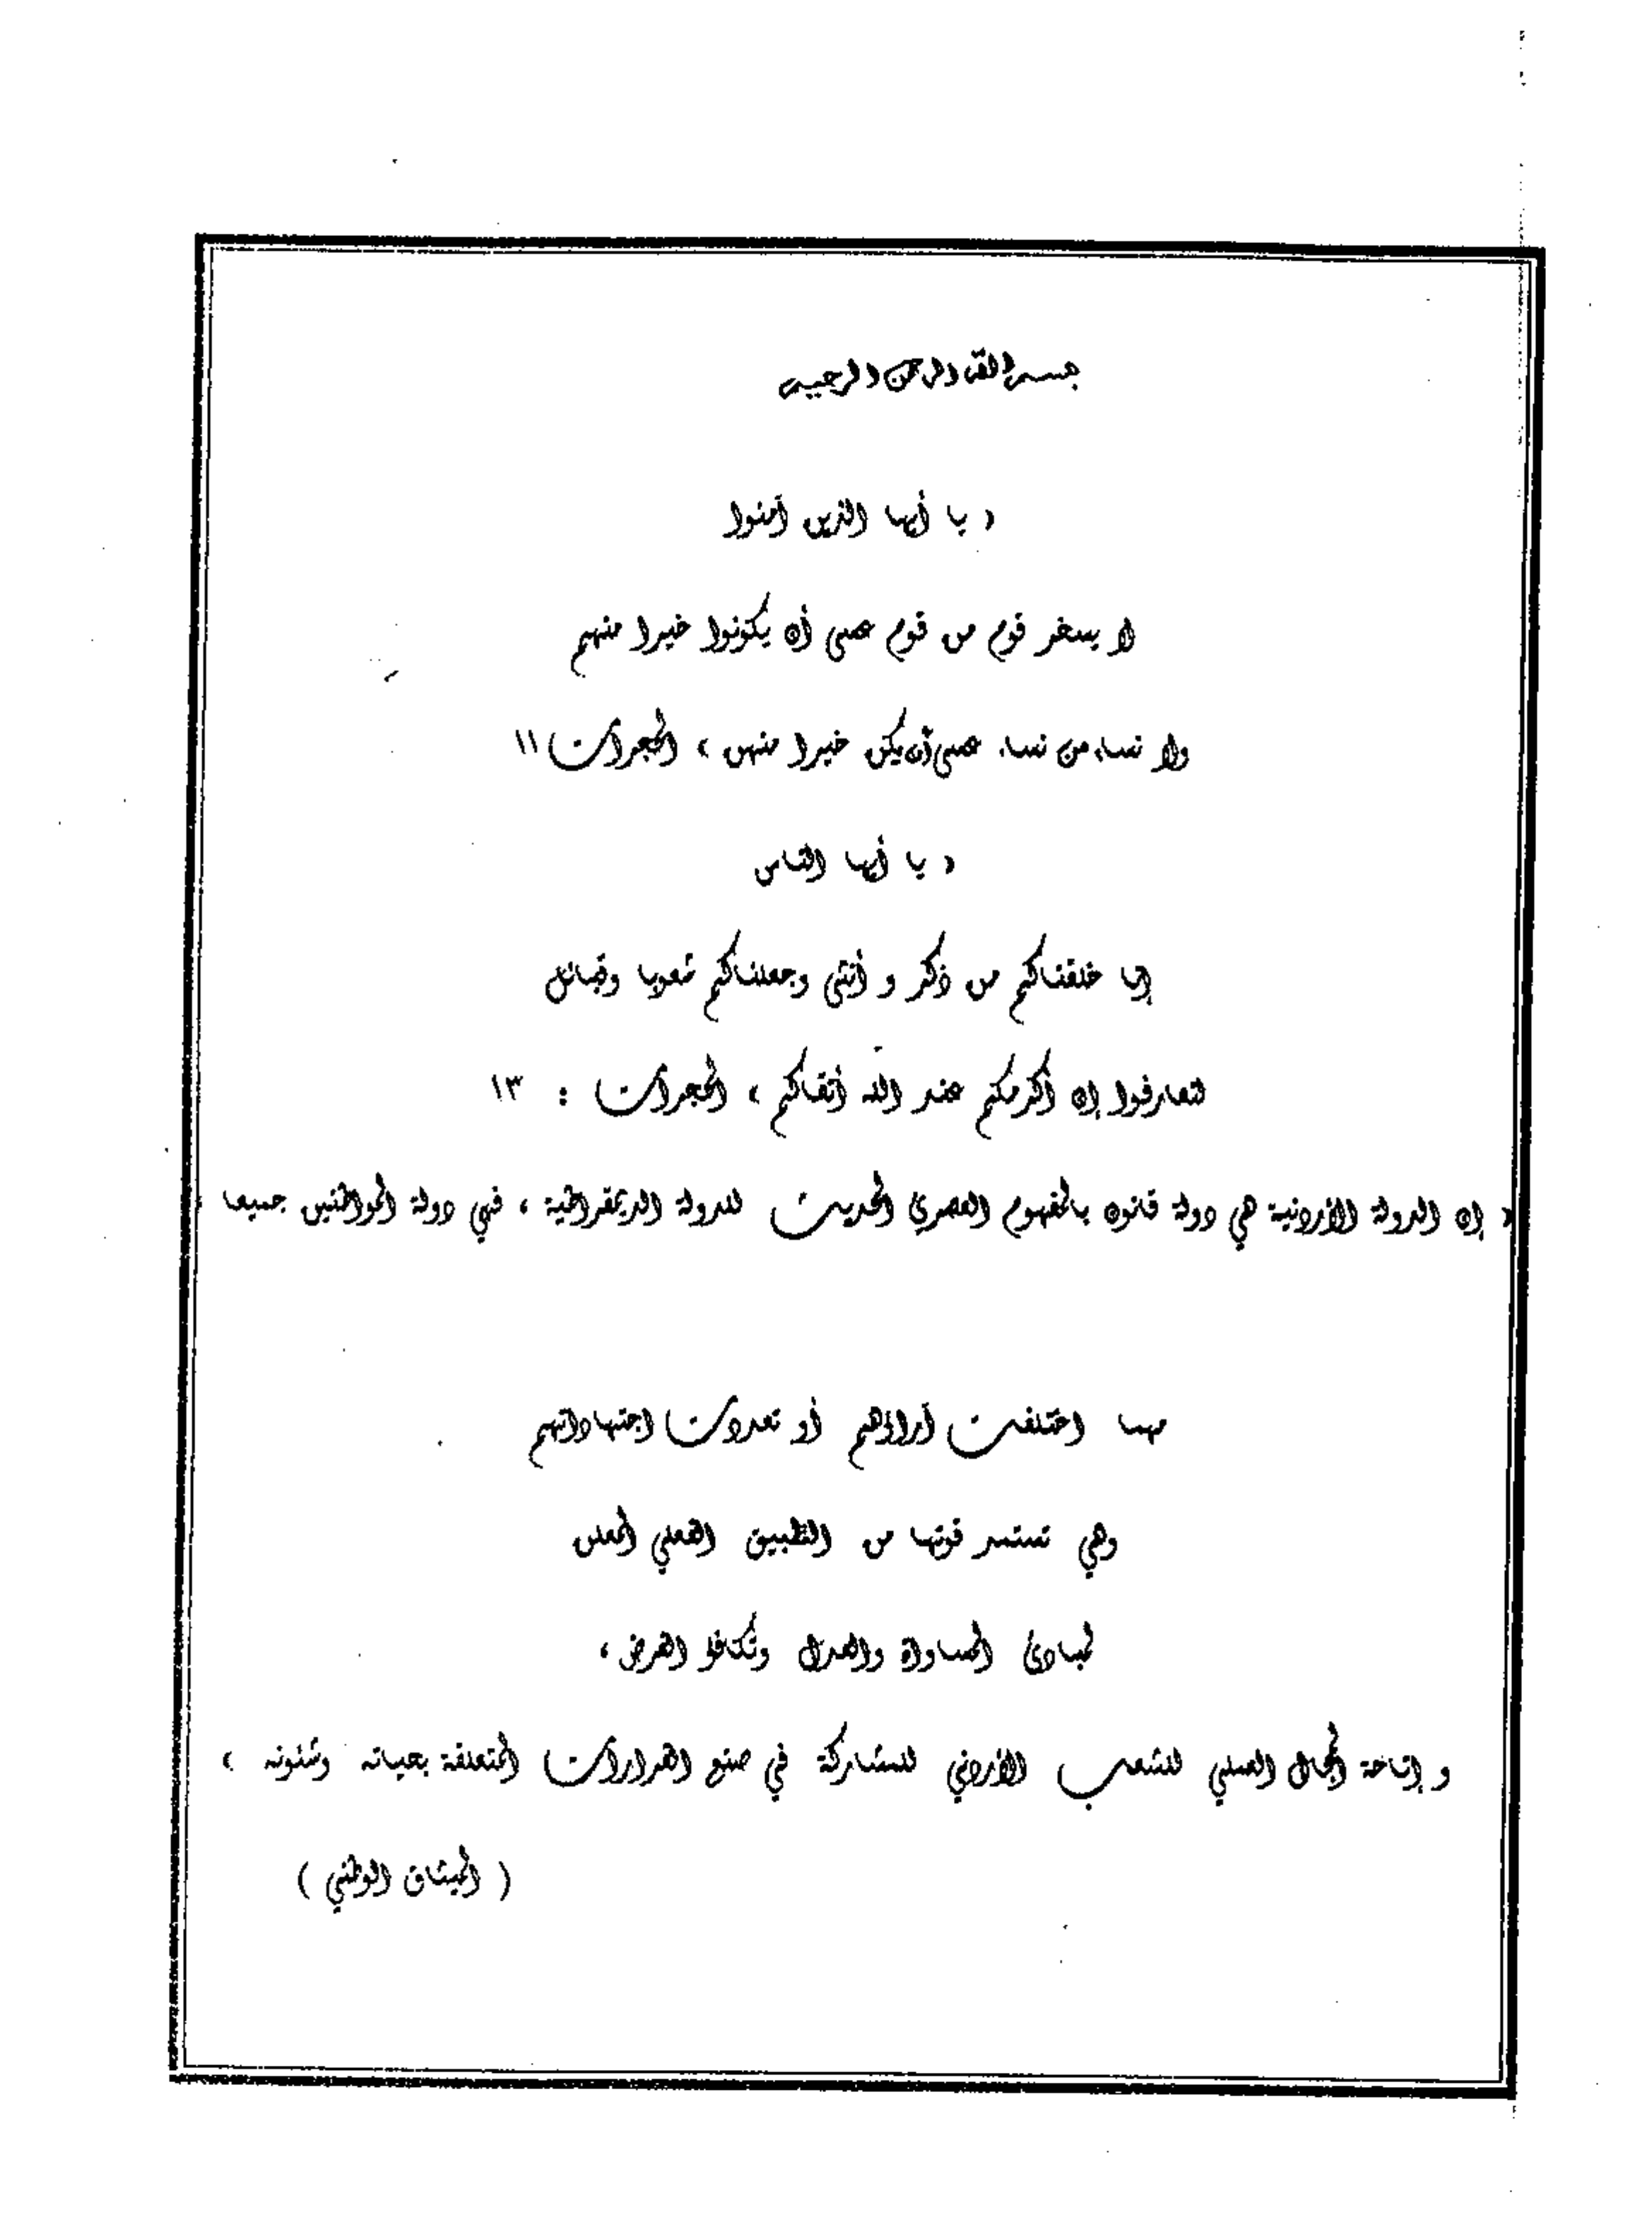 بسم الله الرحمن الرحيم
« يا أيها الذين آمنوا
لا يسخر قوم من قوم عسى أن يكونوا خيرا منهم
ولا نساء من نساء عسى أن يكن خيرا منهن » الحجرات ١١
« يا أيها الناس
إنا خلقناكم من ذكر و أنثى وجعلناكم شعوبا وقبائل
لتعارفوا إن أكرمكم عند الله أتقاكم » الحجرات : ١٣
« إن الدولة الأردنية هي دولة قانون بالمفهوم العصري الحديث للدولة الديمقراطية ، فهي دولة المواطنين جميعا
مهما اختلفت آراؤهم أو تعددت اجتهاداتهم
وهي تستمد قوتها من التطبيق الفعلي المعلن
لمبادئ المساواة والعدل وتكافؤ الفرص ،
و إتاحة المجال العملي للشعب الأردني للمشاركة في صنع القرارات المتعلقة بحياته وشئونه »
( الميثاق الوطني )